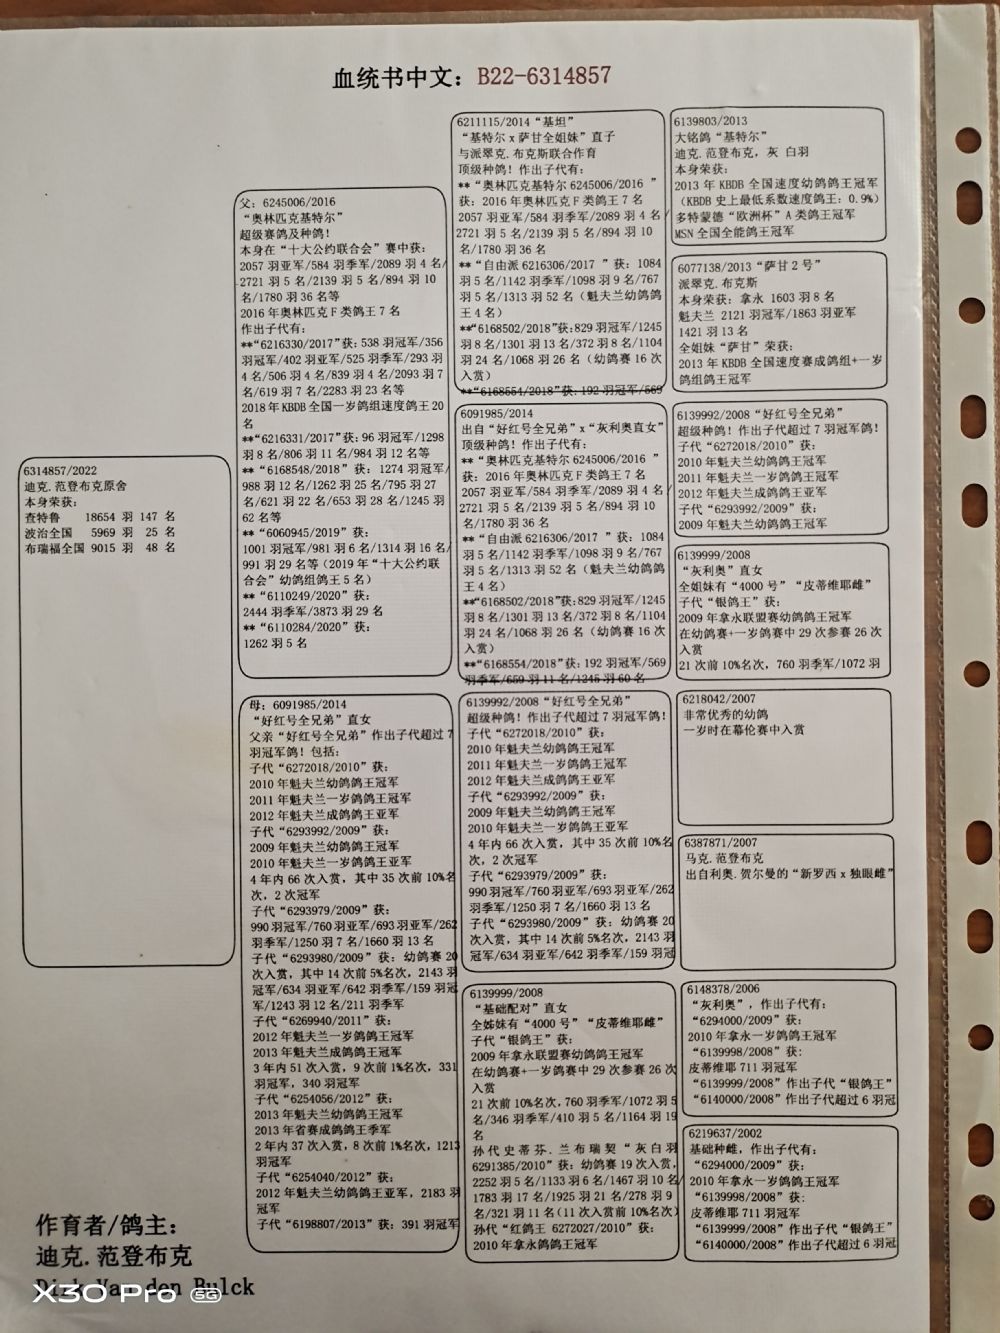 血统书中文：B22-6314857
6314857/2022
迪克.范登布克原舍
本身荣获：
查特鲁 18654 羽 147 名
波治全国 5969 羽 25 名
布瑞福全国 9015 羽 48 名
父：6245006/2016
“奥林匹克基特尔”
超级赛鸽及种鸽！
本身在“十大公约联合会”赛中获：
2057 羽亚军/584 羽季军/2089 羽 4 名/
2721 羽 5 名/2139 羽 5 名/894 羽 10
名/1780 羽 36 名等
2016 年奥林匹克 F 类鸽王 7 名
作出子代有：
**“6216330/2017”获：538 羽冠军/356
羽冠军/402 羽亚军/525 羽季军/293 羽
4 名/506 羽 4 名/839 羽 4 名/2093 羽 7
名/619 羽 7 名/2283 羽 23 名等
2018 年 KBDB 全国一岁鸽组速度鸽王 20
名
**“6216331/2017”获：96 羽冠军/1298
羽 8 名/806 羽 11 名/984 羽 12 名等
**“6168548/2018” 获：1274 羽冠军/
988 羽 12 名/1262 羽 25 名/795 羽 27
名/621 羽 22 名/653 羽 28 名/1245 羽
62 名等
**“6060945/2019”获：
1001 羽冠军/981 羽 6 名/1314 羽 16 名/
991 羽 29 名等（2019 年“十大公约联
合会”幼鸽组鸽王 5 名）
**“6110249/2020”获：
2444 羽季军/3873 羽 29 名
**“6110284/2020”获：
1262 羽 5 名
母：6091985/2014
“好红号全兄弟”直女
父亲“好红号全兄弟”作出子代超过 7
羽冠军鸽！包括：
子代“6272018/2010”获：
2010 年魁夫兰幼鸽鸽王冠军
2011 年魁夫兰一岁鸽鸽王冠军
2012 年魁夫兰成鸽鸽王亚军
子代“6293992/2009”获：
2009 年魁夫兰幼鸽鸽王冠军
2010 年魁夫兰一岁鸽鸽王亚军
4 年内 66 次入赏，其中 35 次前 10%名
次，2 次冠军
子代“6293979/2009”获：
990 羽冠军/760 羽亚军/693 羽亚军/262
羽季军/1250 羽 7 名/1660 羽 13 名
子代“6293980/2009”获：幼鸽赛 20
次入赏，其中 14 次前 5%名次，2143 羽
冠军/634 羽亚军/642 羽季军/159 羽冠
军/1243 羽 12 名/211 羽季军
子代“6269940/2011”获：
2012 年魁夫兰一岁鸽鸽王冠军
2013 年魁夫兰成鸽鸽王冠军
3 年内 51 次入赏，9 次前 1%名次，331
羽冠军，340 羽冠军
子代“6254056/2012”获：
2013 年魁夫兰幼鸽鸽王冠军
2013 年省赛成鸽鸽王季军
2 年内 37 次入赏，8 次前 1%名次，1213
羽冠军
子代“6254040/2012”获：
2012 年魁夫兰幼鸽鸽王亚军，2183 羽
冠军
子代“6198807/2013”获：391 羽冠军
6211115/2014“基坦”
“基特尔 x 萨甘全姐妹”直子
与派翠克.布克斯联合作育
顶级种鸽！作出子代有：
**“奥林匹克基特尔 6245006/2016 ”
获：2016 年奥林匹克 F 类鸽王 7 名
2057 羽亚军/584 羽季军/2089 羽 4 名/
2721 羽 5 名/2139 羽 5 名/894 羽 10
名/1780 羽 36 名
**“自由派 6216306/2017 ”获：1084
羽 5 名/1142 羽季军/1098 羽 9 名/767
羽 5 名/1313 羽 52 名（魁夫兰幼鸽鸽
王 4 名）
**“6168502/2018”获:829 羽冠军/1245
羽 8 名/1301 羽 13 名/372 羽 8 名/1104
羽 24 名/1068 羽 26 名（幼鸽赛 16 次
入赏）
**“6168554/2018”获：192 羽冠军/569
6091985/2014
出自“好红号全兄弟”x“灰利奥直女”
顶级种鸽！作出子代有：
**“奥林匹克基特尔 6245006/2016 ”
获：2016 年奥林匹克 F 类鸽王 7 名
2057 羽亚军/584 羽季军/2089 羽 4 名/
2721 羽 5 名/2139 羽 5 名/894 羽 10
名/1780 羽 36 名
**“自由派 6216306/2017 ”获：1084
羽 5 名/1142 羽季军/1098 羽 9 名/767
羽 5 名/1313 羽 52 名（魁夫兰幼鸽鸽
王 4 名）
**“6168502/2018”获:829 羽冠军/1245
羽 8 名/1301 羽 13 名/372 羽 8 名/1104
羽 24 名/1068 羽 26 名（幼鸽赛 16 次
入赏）
**“6168554/2018”获：192 羽冠军/569
羽季军/659 羽 11 名/1245 羽 60 名
6139992/2008“好红号全兄弟”
超级种鸽！作出子代超过 7 羽冠军鸽！
子代“6272018/2010”获：
2010 年魁夫兰幼鸽鸽王冠军
2011 年魁夫兰一岁鸽鸽王冠军
2012 年魁夫兰成鸽鸽王亚军
子代“6293992/2009”获：
2009 年魁夫兰幼鸽鸽王冠军
2010 年魁夫兰一岁鸽鸽王亚军
4 年内 66 次入赏，其中 35 次前 10%名
次，2 次冠军
子代“6293979/2009”获：
990 羽冠军/760 羽亚军/693 羽亚军/262
羽季军/1250 羽 7 名/1660 羽 13 名
子代“6293980/2009”获：幼鸽赛 20
次入赏，其中 14 次前 5%名次，2143 羽
冠军/634 羽亚军/642 羽季军/159 羽冠
6139999/2008
“基础配对”直女
全姊妹有“4000 号”“皮蒂维耶雌”
子代“银鸽王”获：
2009 年拿永联盟赛幼鸽鸽王冠军
在幼鸽赛+一岁鸽赛中 29 次参赛 26 次
入赏
21 次前 10%名次，760 羽季军/1072 羽 5
名/346 羽季军/410 羽 5 名/1164 羽 19
名
孙代史蒂芬.兰布瑞契“灰白羽
6291385/2010”获：幼鸽赛 19 次入赏，
2252 羽 5 名/1133 羽 6 名/1467 羽 10 名/
1783 羽 17 名/1925 羽 21 名/278 羽 9
名/321 羽 11 名(11 次入赏前 10%名次)
孙代“红鸽王 6272027/2010”获：
2010 年拿永鸽鸽王冠军
6139803/2013
大铭鸽“基特尔”
迪克.范登布克，灰 白羽
本身荣获：
2013 年 KBDB 全国速度幼鸽鸽王冠军
（KBDB 史上最低系数速度鸽王：0.9%）
多特蒙德“欧洲杯”A 类鸽王冠军
MSN 全国全能鸽王冠军
6077138/2013“萨甘 2 号”
派翠克.布克斯
本身荣获：拿永 1603 羽 8 名
魁夫兰 2121 羽冠军/1863 羽亚军
1421 羽 13 名
全姐妹“萨甘”荣获：
2013 年 KBDB 全国速度赛成鸽组+一岁
鸽组鸽王冠军
6139992/2008“好红号全兄弟”
超级种鸽！作出子代超过 7 羽冠军鸽！
子代“6272018/2010”获：
2010 年魁夫兰幼鸽鸽王冠军
2011 年魁夫兰一岁鸽鸽王冠军
2012 年魁夫兰成鸽鸽王亚军
子代“6293992/2009”获：
2009 年魁夫兰幼鸽鸽王冠军
6139999/2008
“灰利奥”直女
全姐妹有“4000 号”“皮蒂维耶雌”
子代“银鸽王”获：
2009 年拿永联盟赛幼鸽鸽王冠军
在幼鸽赛+一岁鸽赛中 29 次参赛 26 次
入赏
21 次前 10%名次，760 羽季军/1072 羽
6218042/2007
非常优秀的幼鸽
一岁时在幕伦赛中入赏
6387871/2007
马克.范登布克
出自利奥.贺尔曼的“新罗西 x 独眼雌”
6148378/2006
“灰利奥”，作出子代有：
“6294000/2009”获：
2010 年拿永一岁鸽鸽王冠军
“6139998/2008”获：
皮蒂维耶 711 羽冠军
“6139999/2008”作出子代“银鸽王”
“6140000/2008”作出子代超过 6 羽冠
6219637/2002
基础种雌，作出子代有：
“6294000/2009”获：
2010 年拿永一岁鸽鸽王冠军
“6139998/2008”获：
皮蒂维耶 711 羽冠军
“6139999/2008”作出子代“银鸽王”
“6140000/2008”作出子代超过 6 羽冠
作育者/鸽主：
迪克.范登布克
Dirk Van den Bulck
X30 Pro 5G